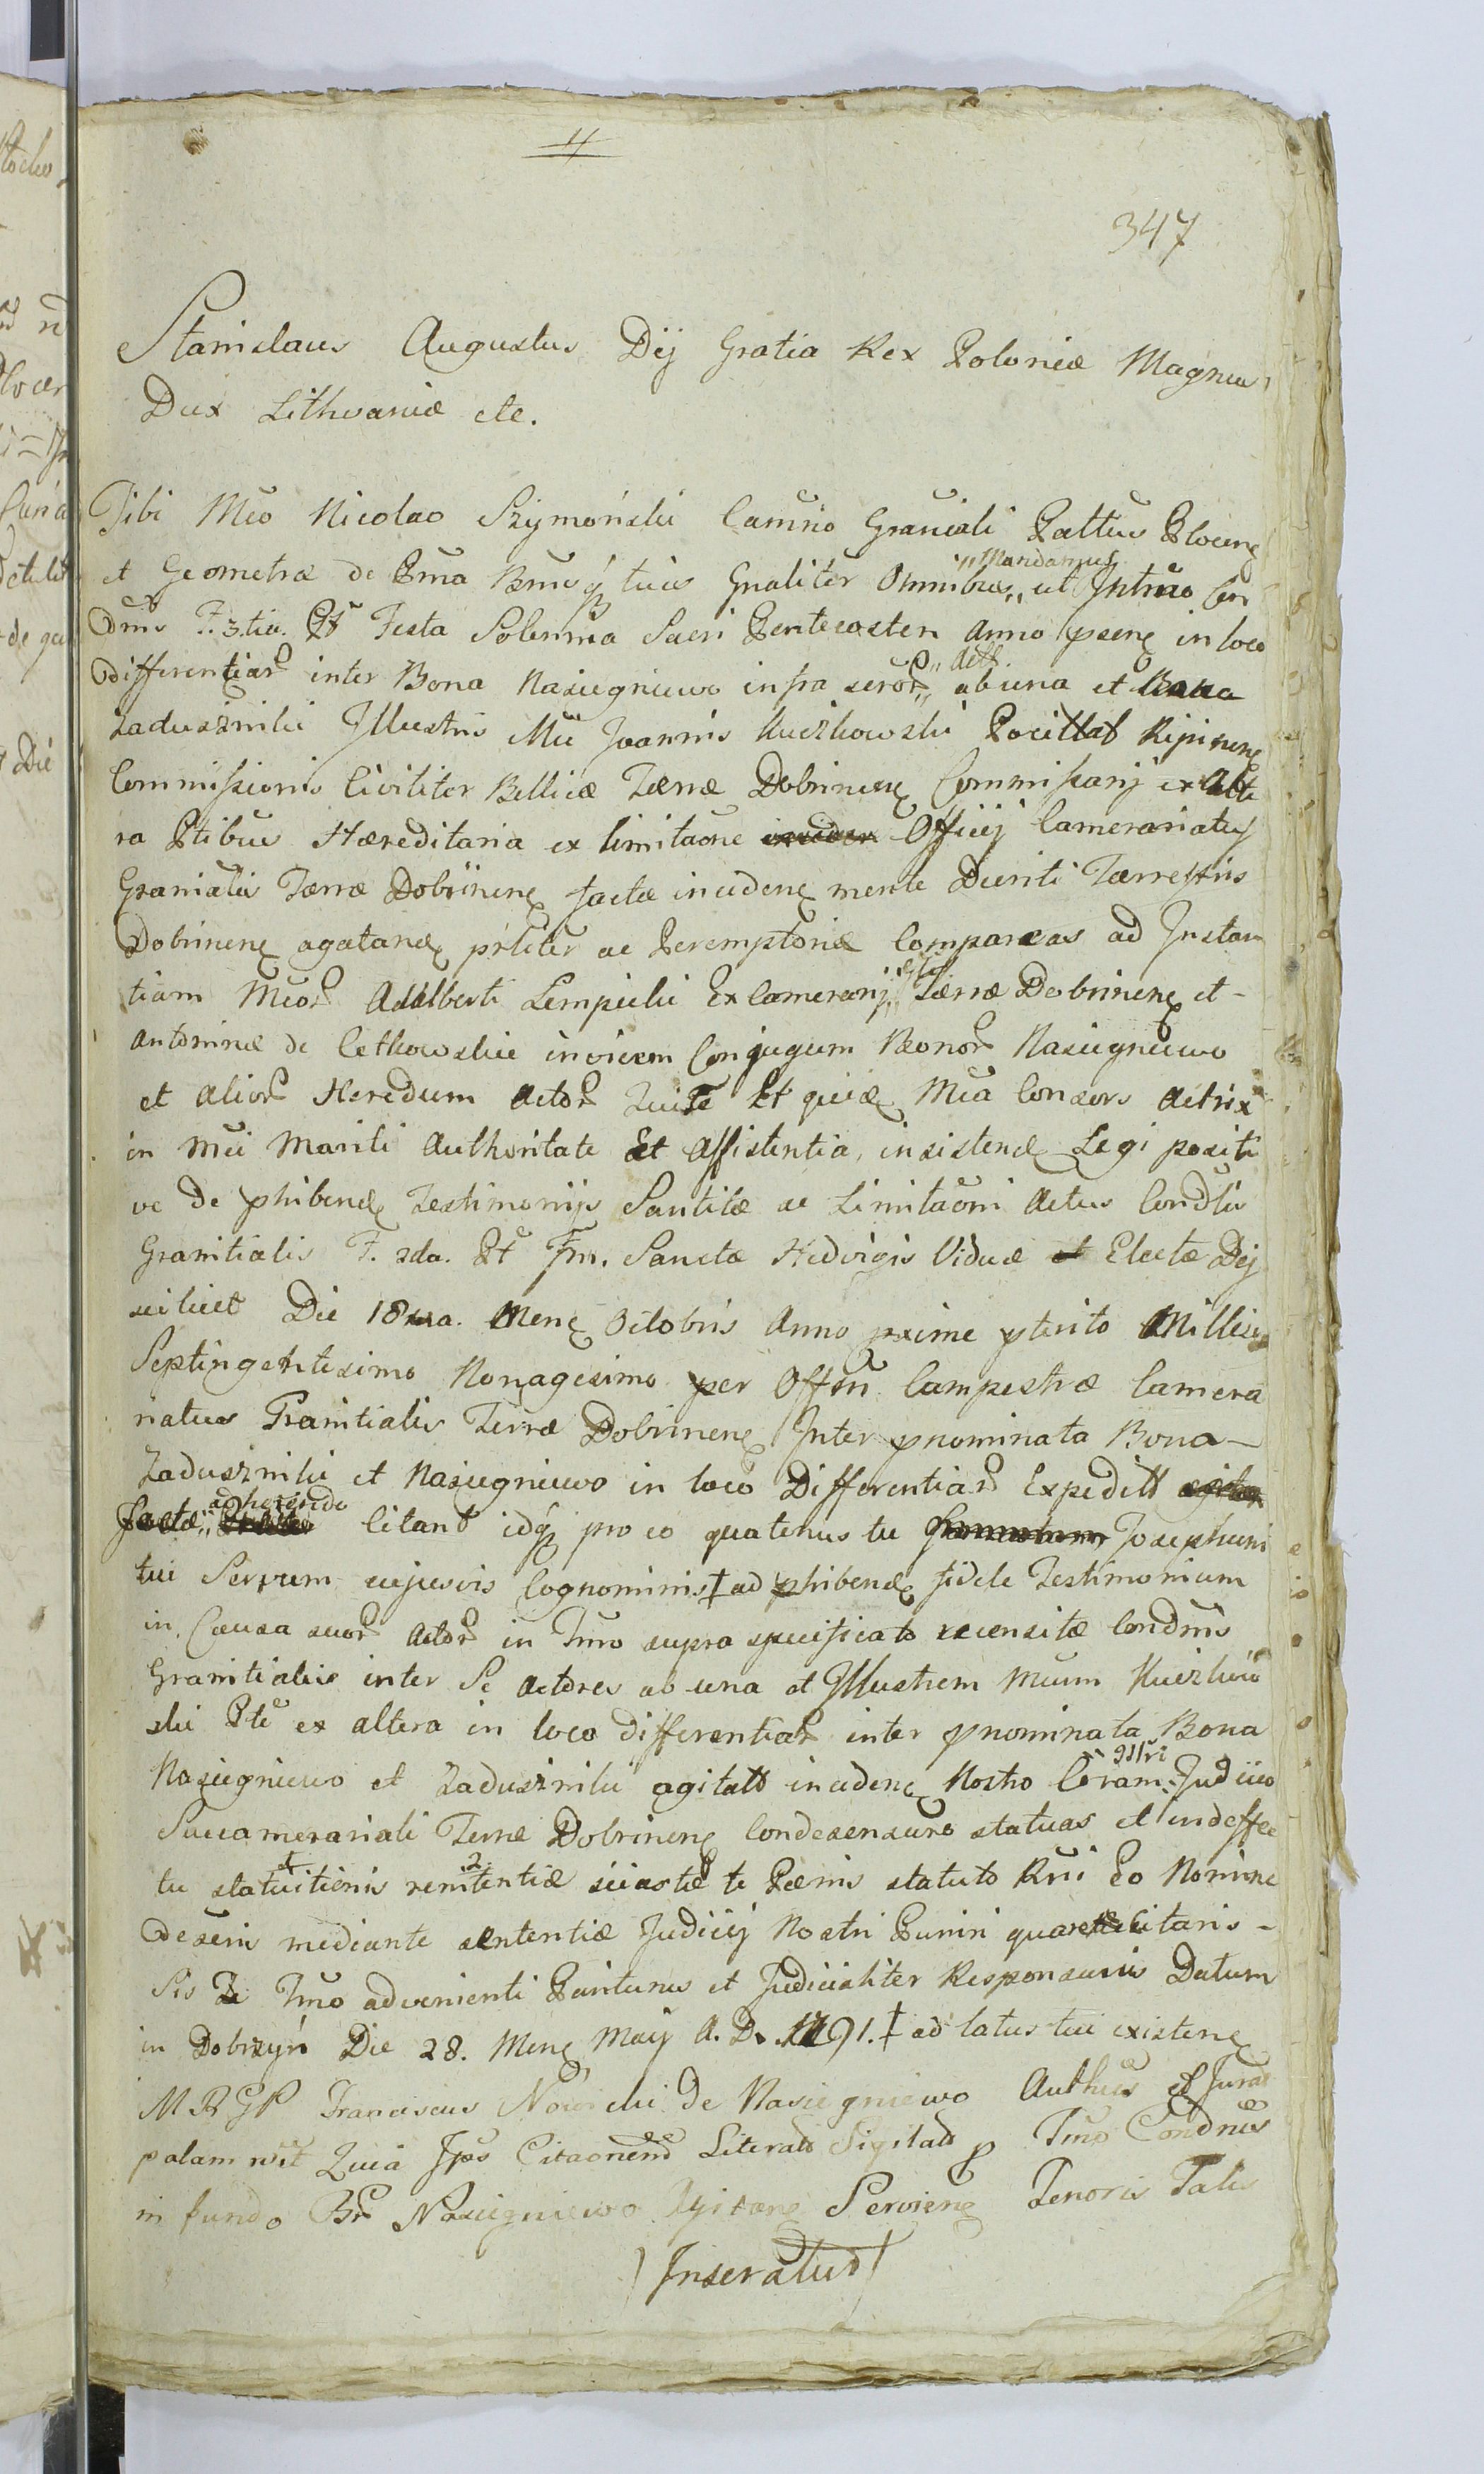 4
347
Stanislaus Augustus Dij Gratia Rex Poloniæ Magnus
Dux Lithvaniæ etc.
Tibi Mco Nicolao Szymoński Camrio Graniali Pattus Plocen
et Geometræ de Prna Bnusq tuis Gnaliter Omnibus,, ut Intmo Con
,,Mandamus
dnis F. 3tia. Pt Festa Solenna Sacri Pentecosten Anno psen in loco
differentiar inter Bona Nasiegniewo infra scror,, ab una et Bona
,, Actt.
Zaduszniki Illustris Mci Joannis Kuczkowski Pocillat Ripinen
Commissionis Civiliter Bellicæ Terræ Dobrinen Commissarij ex alte
ra Ptibus Hæreditaria ex limitaone Officij Camerariatus
Granialis Terræ Dobrinen factæ inciden mente Decriti Terrestris
Dobrinen agatan prliter ac Peremptorie Compareas ad Instan
tiam Mcor Adalberti Lempicki Excamerarij,, Terræ Dobrinen et -
Antoninæ de Cetkowskie invicem Conjugum Bonor Nasiegniewo
et alior Heredum Actor Qui Te Et quia Mca Consors Actrix
in Mci Mariti Authoritate Et Assistentia, insisten Legi positi
væ De phiben Testimonijs Sancitæ ac Limitaoni Actus Condtis
Granitialis F. 2da. Pt Fm. Sanctæ Hedvigis Viduæ Electæ Dej
scilicet Die 18va. Men Octobris Anno pxime pterito Millesi
Septingentesimo Nonagesimo per Offm Campestræ Camera
riatus Granitialis Terræ Dobrinen Inter pnominata Bona -
Zaduszniki et Nasiegniewo in loco Differentiar Expeditt
adherendo
factæ,, Citant idq pro eo quatenus tu Josephum
tui Servum cujusvis Cognominis ‡ ad phiben fidele Testimonium
in Causa suor Actor in Tmo supra specificato recensitæ Condnis
Granitialis inter Se Actores ab una et Illustrem Mcum Kuczkow
ski Pte ex altera in loco differentiar inter pnominata Bona
Nasiegniewo et Zaduszniki agitatt inciden Nostro Coram. Judicio
Succamerariali Terræ Dobrinen Condescensuro statuas et in deffec
tu statuitionis renitentiæ te Pænis statuto Rni Eo Nomine
descris mediante sententiæ Judicij Nostri Puniri quare Citaris -
Sis Tmo advenienti Pariturus et Judicialiter Responsurus Datum
in Dobrzyń Die 28. Men Maij A. D. 1791. ‡ ad latus tui existen
M R G P Franciscus Nowicki de Nasiegniewo Authus et Jurat
palam rcit Quia Ipse Citaonem Literatt Sigilatt p Tmo Condnis
in fundo Br Nasiegniewo Servien Tenoris Talis
Inseratur